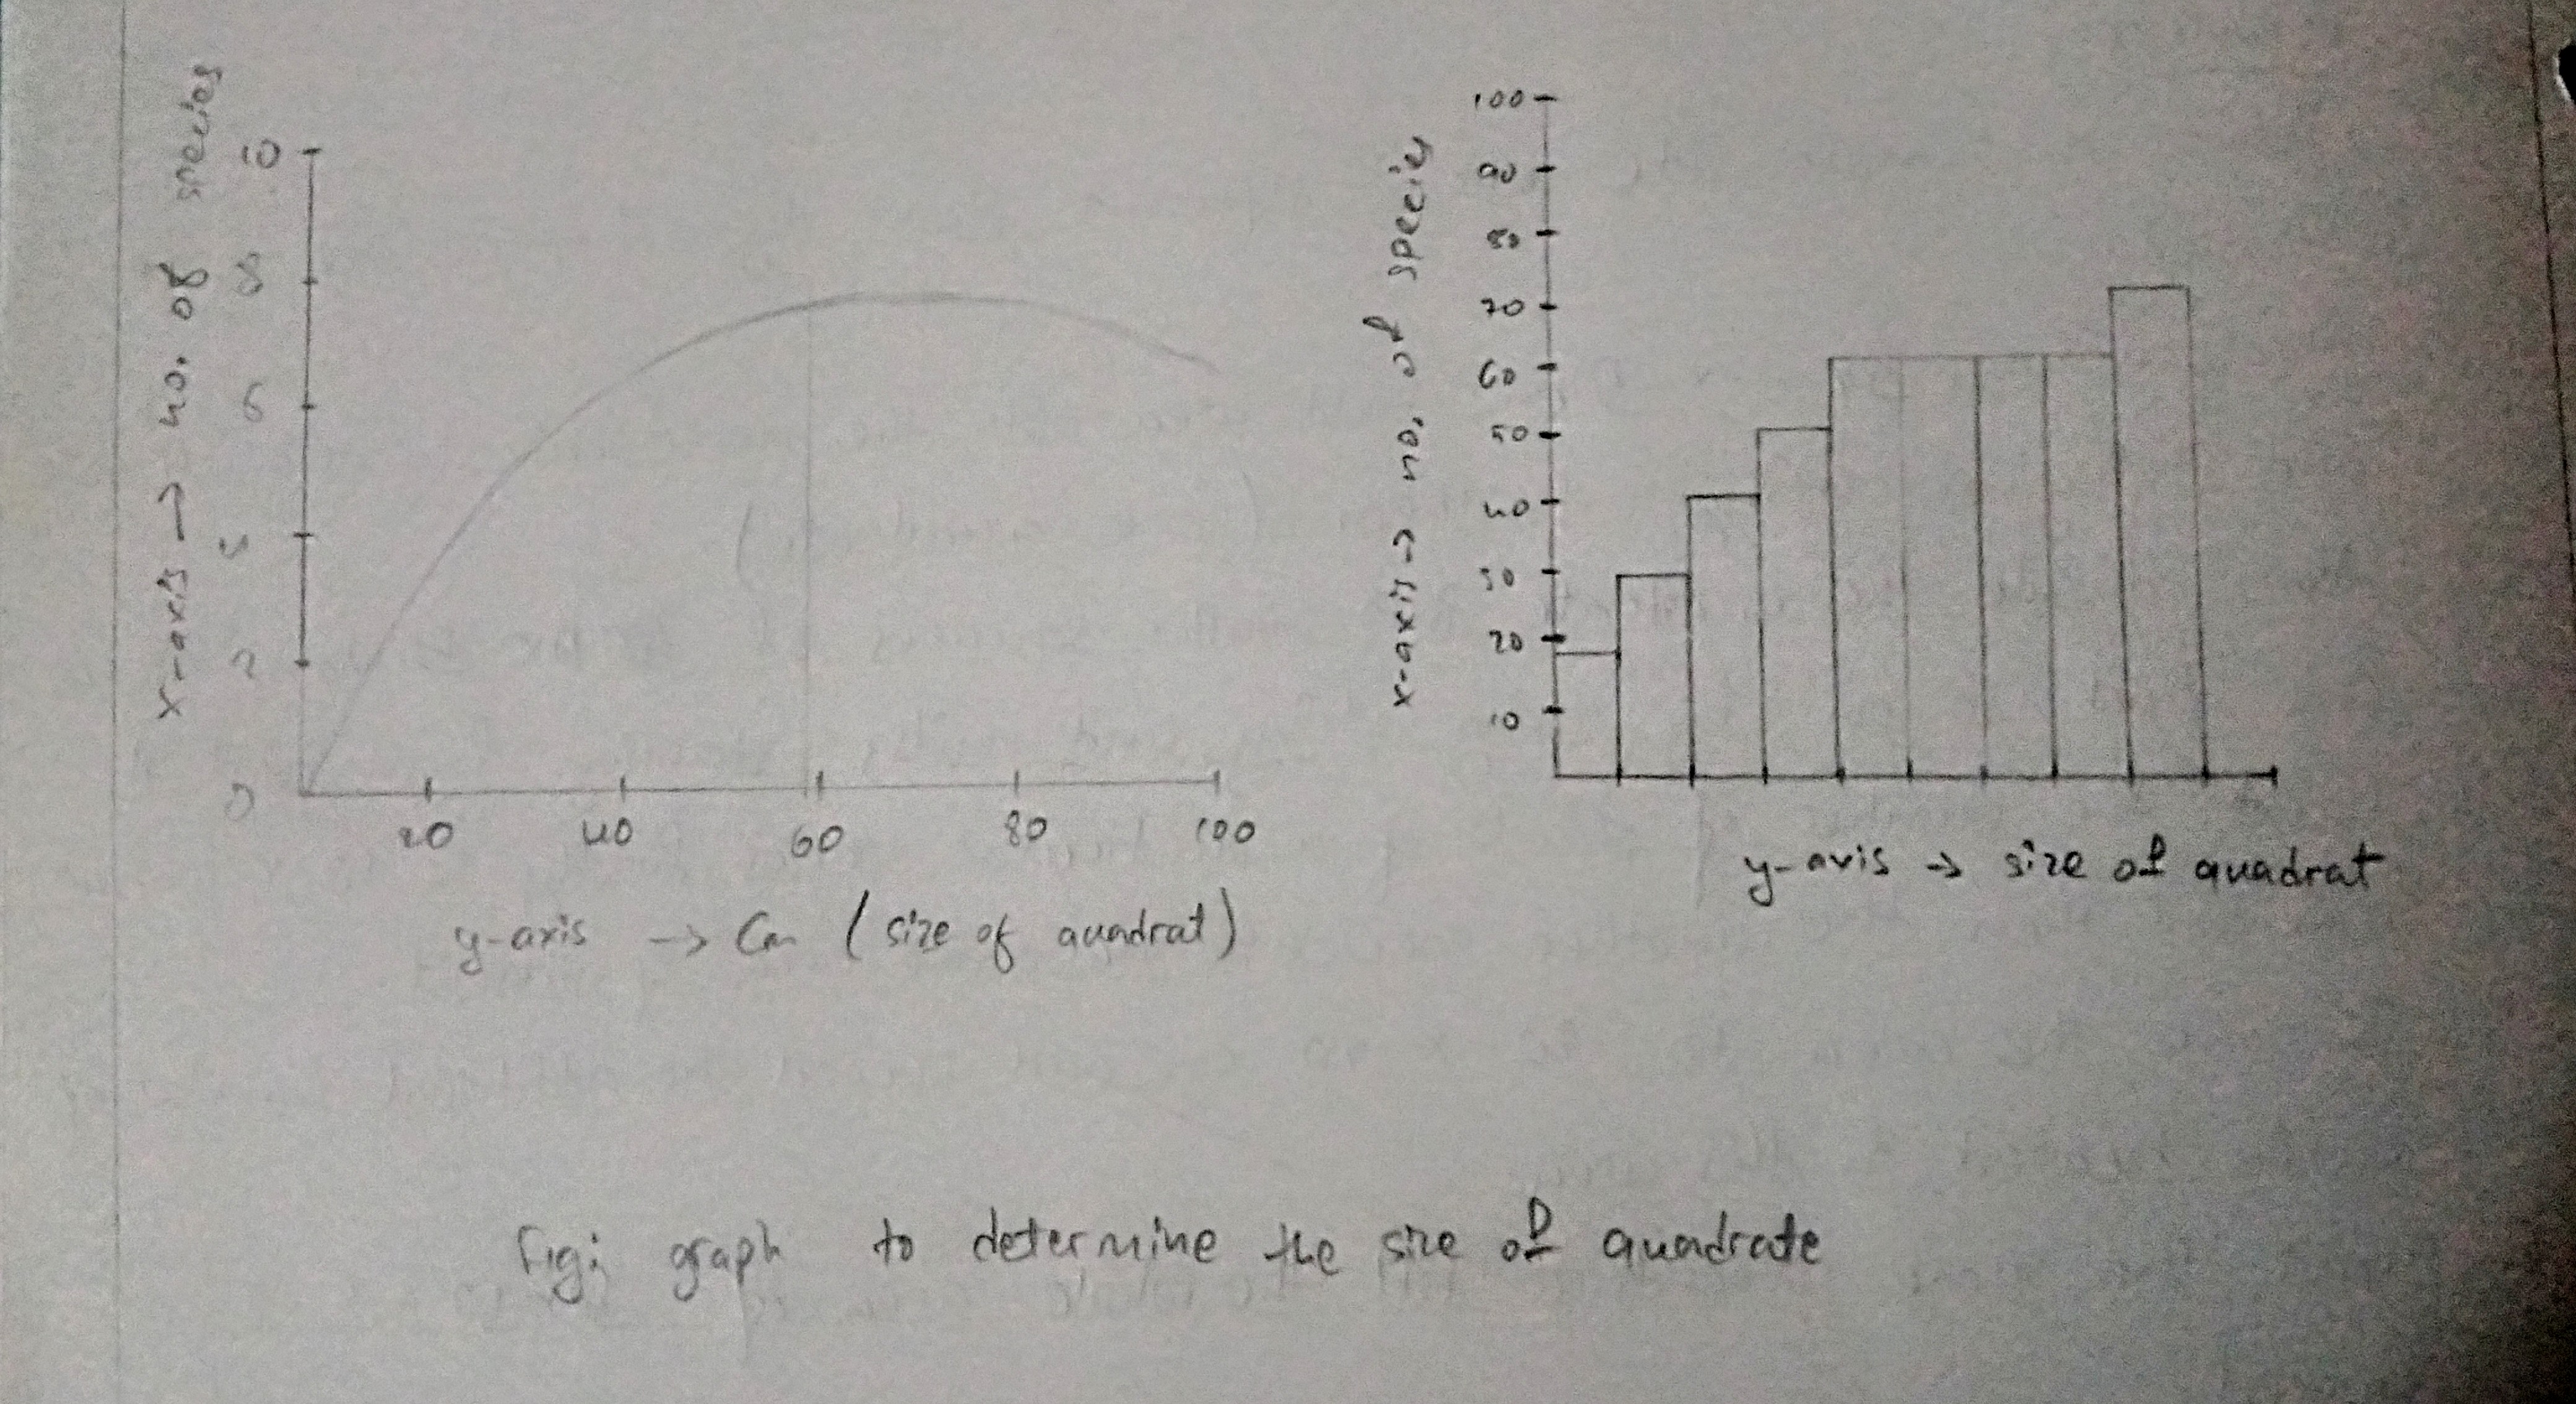 x-axis → no. of species
10
8
6
2
0
20 40 60 80 100
y-axis → Cm (size of quadrat)
x-axis → no. of species
100
90
80
70
60
50
40
30
20
10
y-axis → size of quadrat
fig: graph to determine the size of quadrate